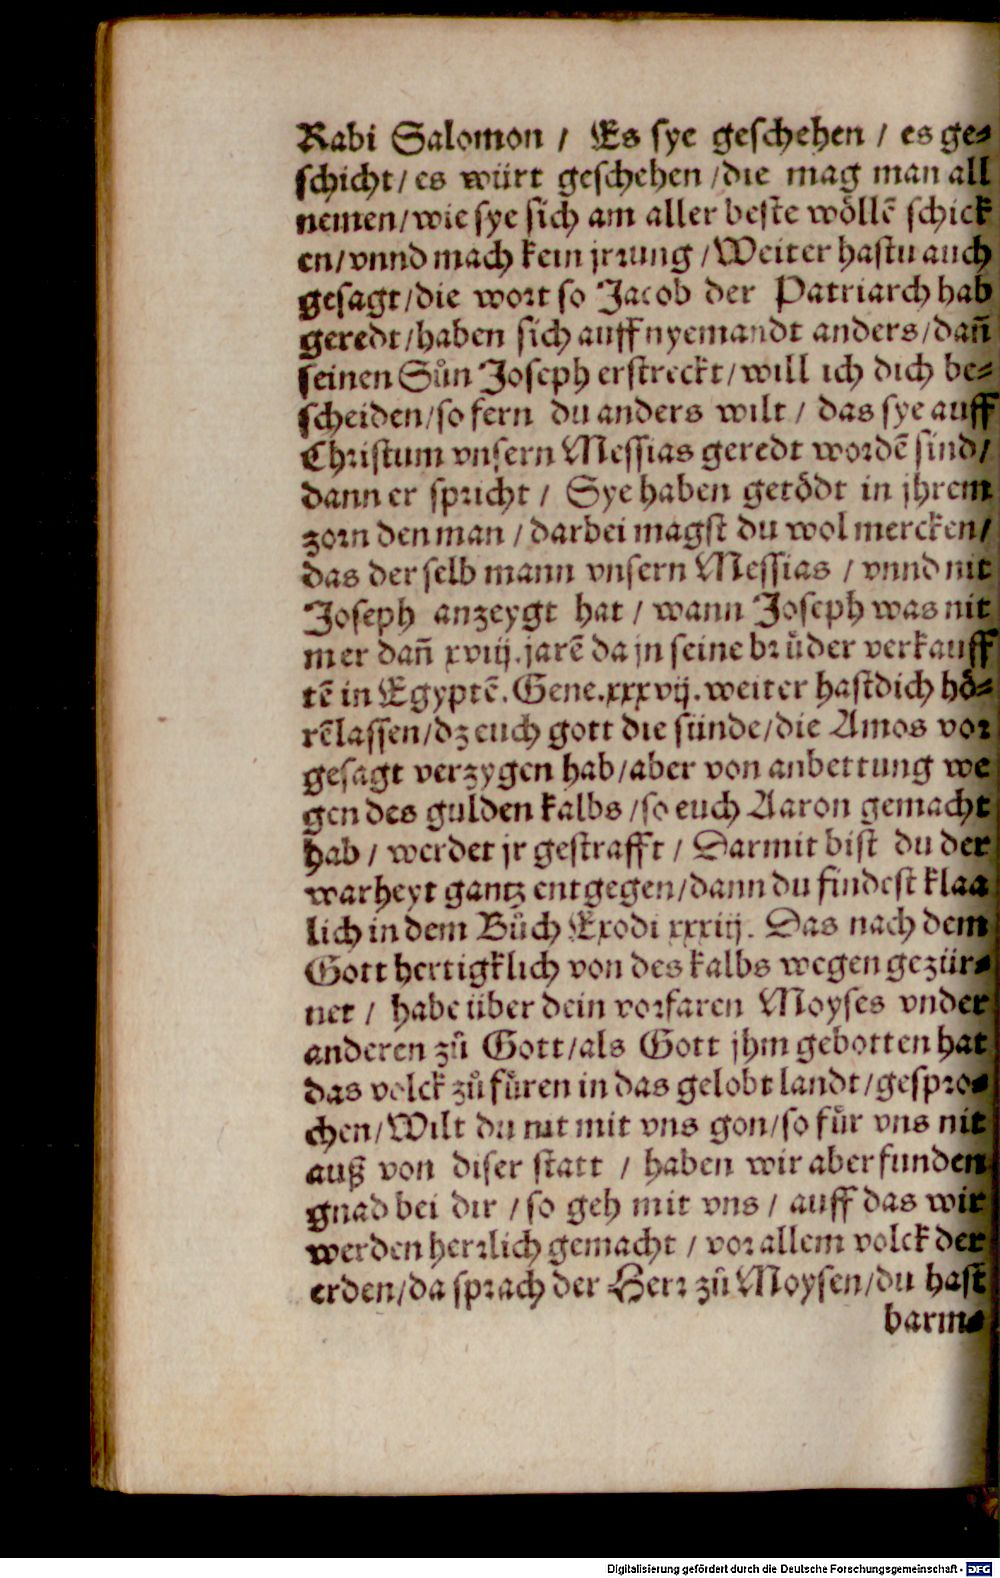 Rabi Salomon / Es sye geschehen / es ge⸗
schicht / es würt geschehen / die mag man all
nemen / wie sye sich am aller beste wöllē schick
en / vnnd mach kein jrrung / Weiter hastu auch
gesagt / die wort so Jacob der Patriarch hab
geredt / haben sich auff nyemandt anders / dañ
seinen Sůn Joseph erstreckt / will ich dich be⸗
scheiden / so fern du anders wilt / das sye auff
Christum vnsern Messias geredt wordē sind /
dann er spricht / Sye haben getödt in jhrem
zorn den man / darbei magst du wol mercken /
das der selb mann vnsern Messias / vnnd nit
Joseph anzeygt hat / wann Joseph was nit
mer dañ xviij. jarē da jn seine brůder verkauff
tē in Egyptē. Gene. xxxvij. weiter hast dich hö⸗
rē lassen / dz euch gott die sünde / die Amos vor
gesagt verzygen hab / aber von anbettung we
gen des gulden kalbs / so euch Aaron gemacht
hab / werdet jr gestrafft / Darmit bist du der
warheyt gantz entgegen / dann du findest klaa
lich in dem Bůch Exodi xxxiij. Das nach dem
Gott hertigklich von des kalbs wegen gezür⸗
net / habe über dein vorfaren Moyses vnder
anderen zů Gott / als Gott jhm gebotten hat
das volck zů fůren in das gelobt landt / gespro⸗
chen / Wilt du nit mit vns gon / so fůr vns nit
auß von diser statt / haben wir aber funden
gnad bei dir / so geh mit vns / auff das wir
werden herrlich gemacht / vor allem volck der
erden / da sprach der Herr zů Moysen / du hast
barm⸗
Digitalisierung gefördert durch die Deutsche Forschungsgemeinschaft - DFG